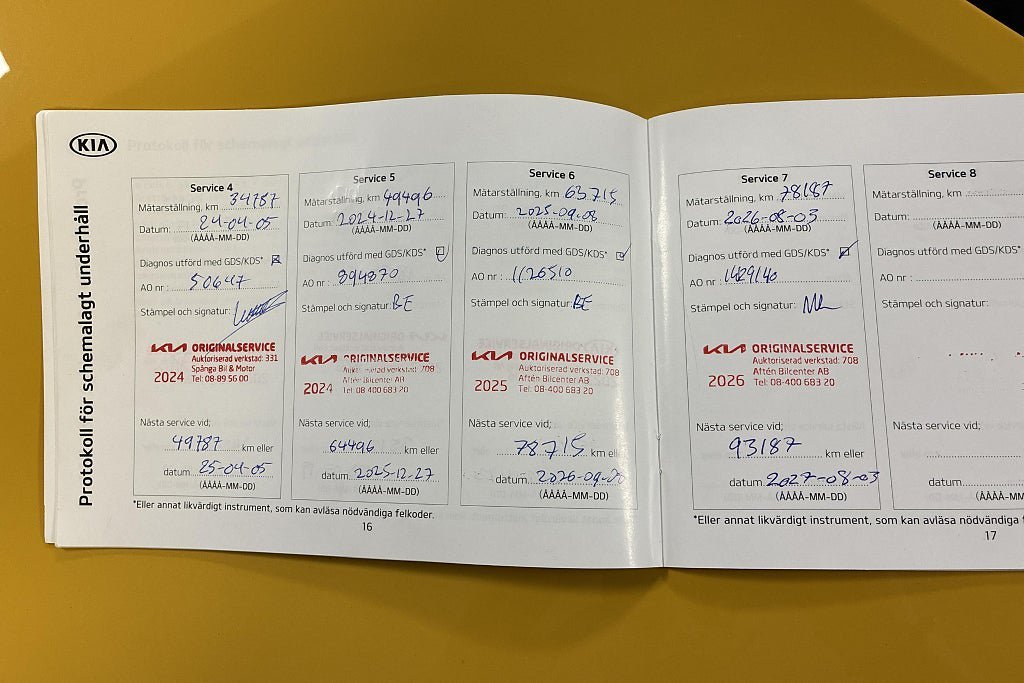 KIA
Protokoll för schemalagt underhåll
Service 4
Mätarställning, km 34787
Datum: 24-04-05
(ÅÅÅÅ-MM-DD)
Diagnos utförd med GDS/KDS*
AO nr : 50647
Stämpel och signatur:
KIA ORIGINALSERVICE
Auktoriserad verkstad: 331
Spånga Bil & Motor
2024 Tel: 08-89 56 00
Nästa service vid;
49787 km eller
datum 25-04-05
(ÅÅÅÅ-MM-DD)
Service 5
Mätarställning, km 49496
Datum: 2024-12-27
(ÅÅÅÅ-MM-DD)
Diagnos utförd med GDS/KDS*
AO nr : 894870
Stämpel och signatur: BE
KIA ORIGINALSERVICE
Auktoriserad verkstad: 708
Aftén Bilcenter AB
2024 Tel: 08-400 683 20
Nästa service vid;
64496 km eller
datum 2025-12-27
(ÅÅÅÅ-MM-DD)
Service 6
Mätarställning, km 63715
Datum: 2025-09-08
(ÅÅÅÅ-MM-DD)
Diagnos utförd med GDS/KDS*
AO nr : 1126510
Stämpel och signatur: BE
KIA ORIGINALSERVICE
Auktoriserad verkstad: 708
Aftén Bilcenter AB
2025 Tel: 08-400 683 20
Nästa service vid;
78715 km eller
datum 2026-09-
(ÅÅÅÅ-MM-DD)
*Eller annat likvärdigt instrument, som kan avläsa nödvändiga felkoder.
16
Service 7
Mätarställning, km 78187
Datum: 2026-08-03
(ÅÅÅÅ-MM-DD)
Diagnos utförd med GDS/KDS*
AO nr : 1429140
Stämpel och signatur:
KIA ORIGINALSERVICE
Auktoriserad verkstad: 708
Aftén Bilcenter AB
2026 Tel: 08-400 683 20
Nästa service vid;
93187 km eller
datum 2027-08-03
(ÅÅÅÅ-MM-DD)
Service 8
Mätarställning, km
Datum:
(ÅÅÅÅ-MM-DD)
Diagnos utförd med GDS/KDS*
AO nr :
Stämpel och signatur:
Nästa service vid;
datum
(ÅÅÅÅ-MM
*Eller annat likvärdigt instrument, som kan avläsa nödvändiga f
17